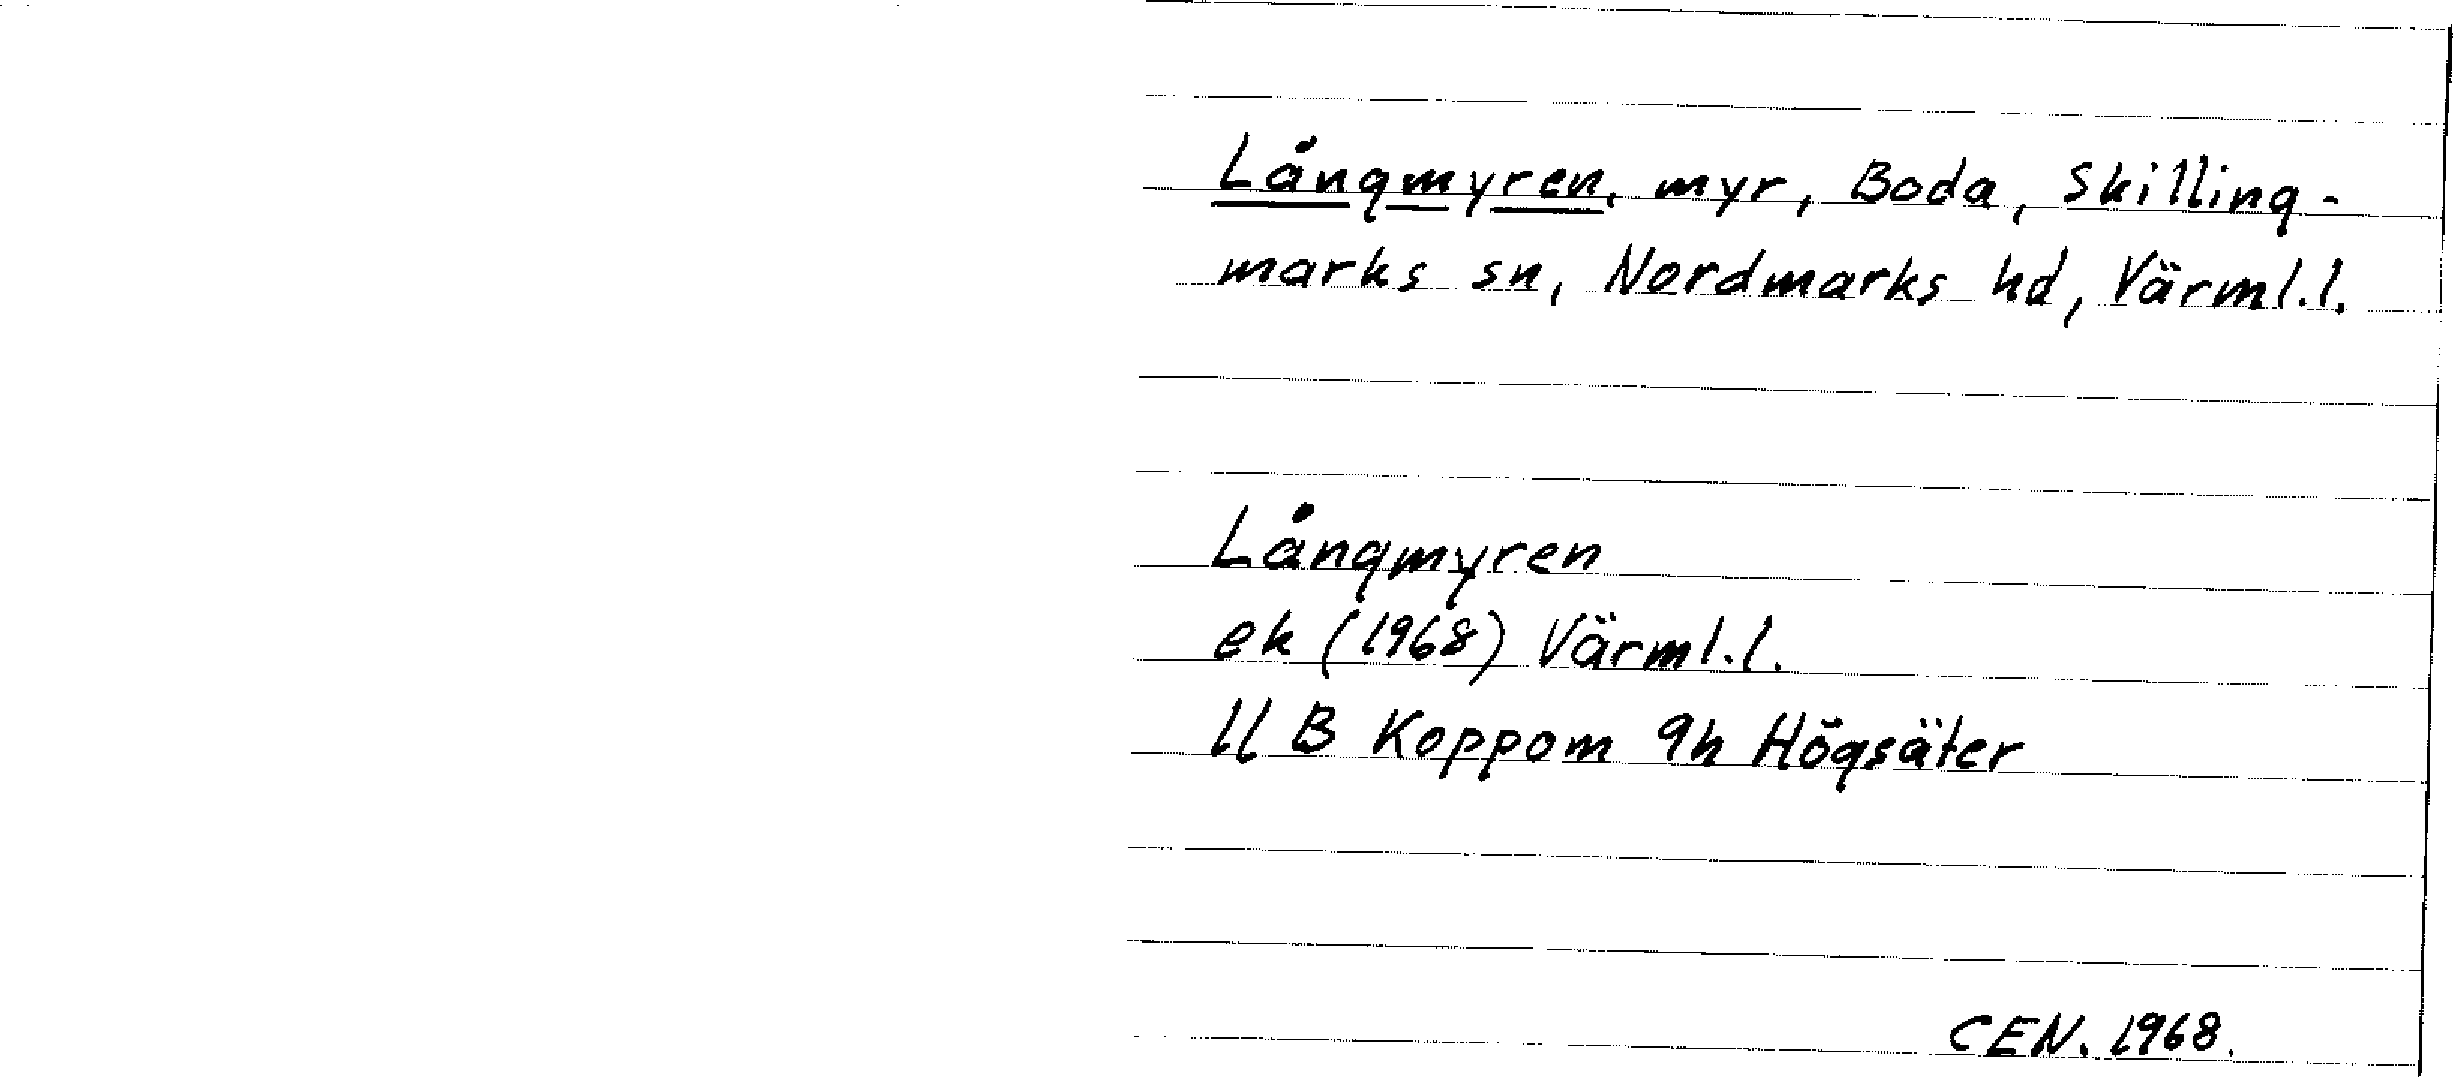 Långmyren, myr, Boda, Skilling-
marks sn, Nordmarks hd, Värml.l.
Långmyren
ek (1968) Värml.l.
11 B Koppom 9h Högsäter
CEN. 1968.